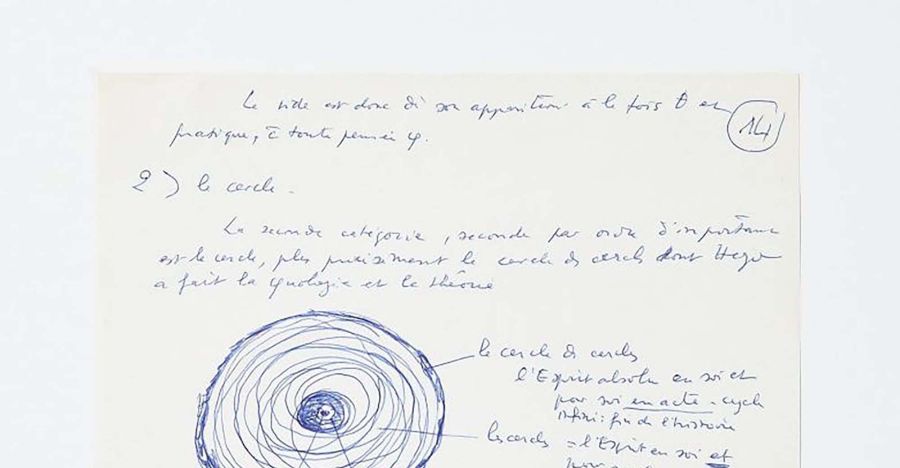 Le vide est donc di son apparition à la fois θ en
pratique, à toute pensée φ.
14
2) le cercle.
La seconde catégorie, seconde par ordre d'importance
est le cercle, plus précisément le cercle des cercles dont Hegel
a fait la et la théorie
le cercle des cercles
l'Esprit absolu en soi et
pour soi en acte - cycle
infini: fin de l'histoire
les cercles = l'Esprit en soi et
pour